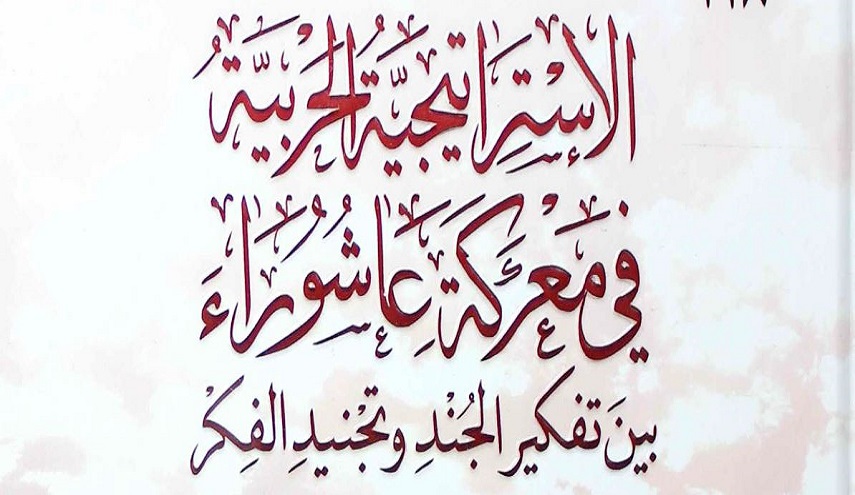 الإسْتِرَاتيجيَّة الحَرْبيَّةُ
في مَعْرَكَة عَاشُورَاءَ
بينَ تفكير الجُنْدِ وتجْنيدِ الفِكْر